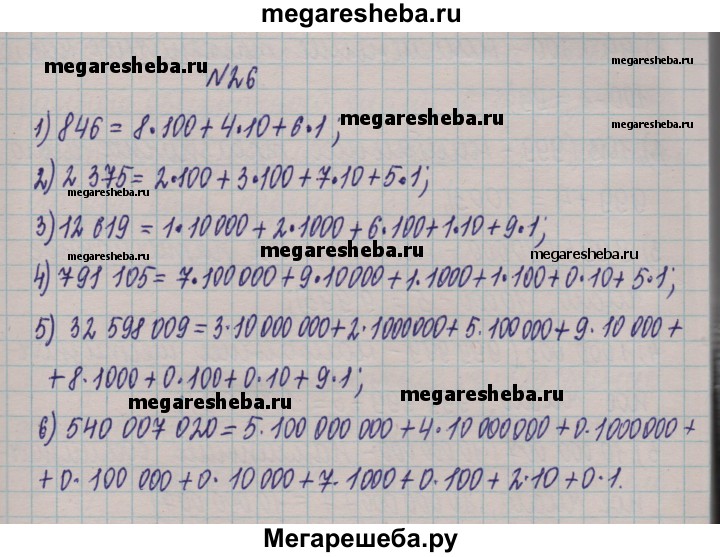 megaresheba.ru
megaresheba.ru
megaresheba.ru
№26
1) 846 = 8·100 + 4·10 + 6·1;
megaresheba.ru
megaresheba.ru
2) 2 375 = 2·100 + 3·100 + 7·10 + 5·1;
megaresheba.ru
3) 12 619 = 1·10 000 + 2·1000 + 6·100 + 1·10 + 9·1;
megaresheba.ru
megaresheba.ru
4) 791 105 = 7·100 000 + 9·10000 + 1·1000 + 1·100 + 0·10 + 5·1;
5) 32 598 009 = 3·10 000 000 + 2·1000000 + 5·100 000 + 9·10 000 +
+ 8·1000 + 0·100 + 0·10 + 9·1;
megaresheba.ru
megaresheba.ru
6) 540 007 020 = 5·100 000 000 + 4·10 000000 + 0·1000000 +
+ 0·100 000 + 0·10 000 + 7·1000 + 0·100 + 2·10 + 0·1.
Мегарешеба.ру